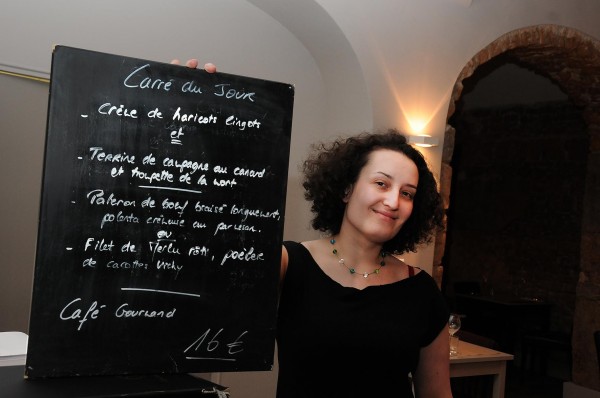 Carré du Jour
- Crème de haricots lingots
et
- Terrine de campagne au canard
et trompette de la mort
- Paleron de boeuf braisé longuement,
polenta crémeuse au parmesan.
ou
- Filet de Merlu rôti, poêlée
de carottes vichy
Café Gourmand
16 €